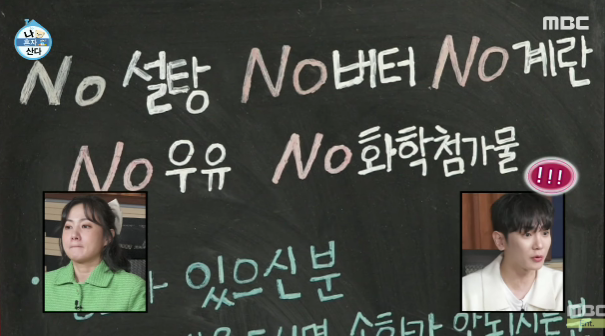 나 혼자 산다
MBC
No 설탕 No 버터 No 계란
No 우유 No 화학첨가물
!!!
있으신 분
소화가 안되시는 분
MBC
ent.